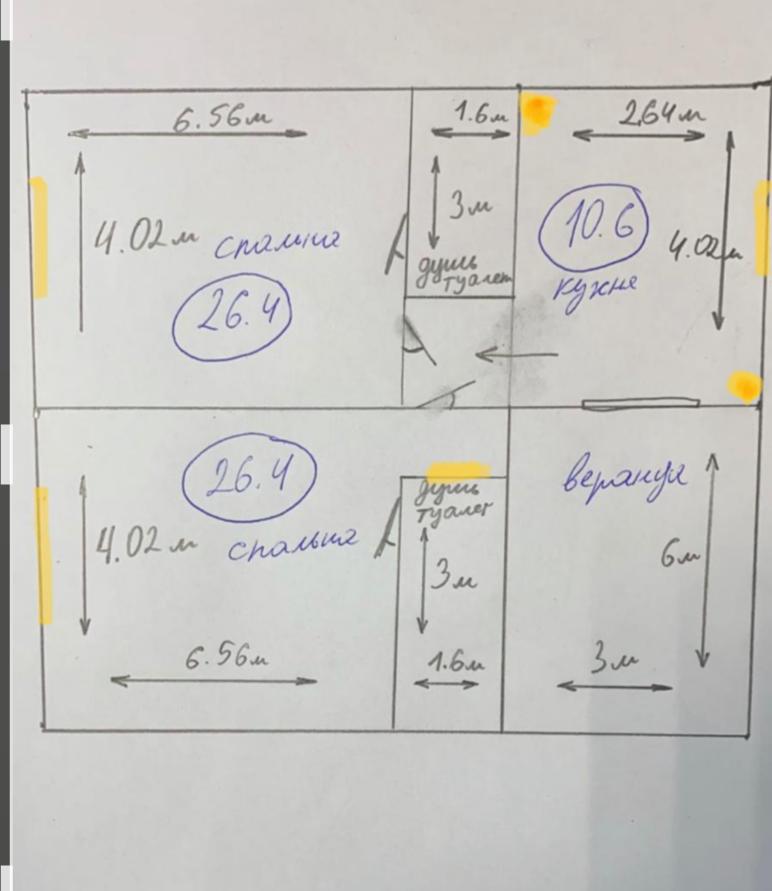 6.56м
1.6м
2.64м
4.02м
спальня
3м
10.6
4.02м
душь
туалет
кухне
26.4
26.4
душь
туалет
веранда
4.02м
спальня
3м
6м
6.56м
1.6м
3м